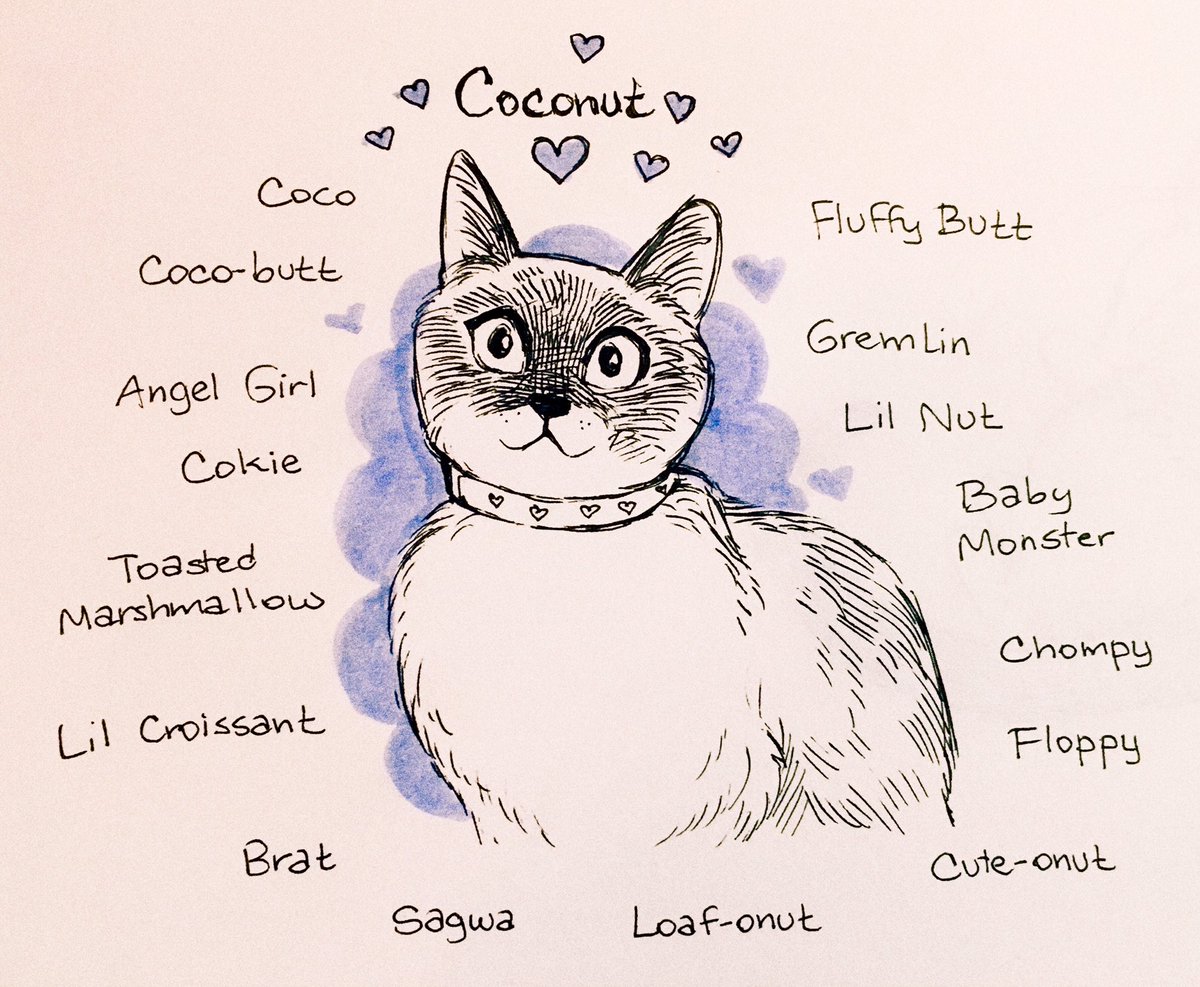 Coconut
Coco
Coco-butt
Angel Girl
Cokie
Toasted
Marshmallow
Lil Croissant
Brat
Sagwa
Loaf-onut
Cute-onut
Floppy
Chompy
Baby
Monster
Lil Nut
Gremlin
Fluffy Butt